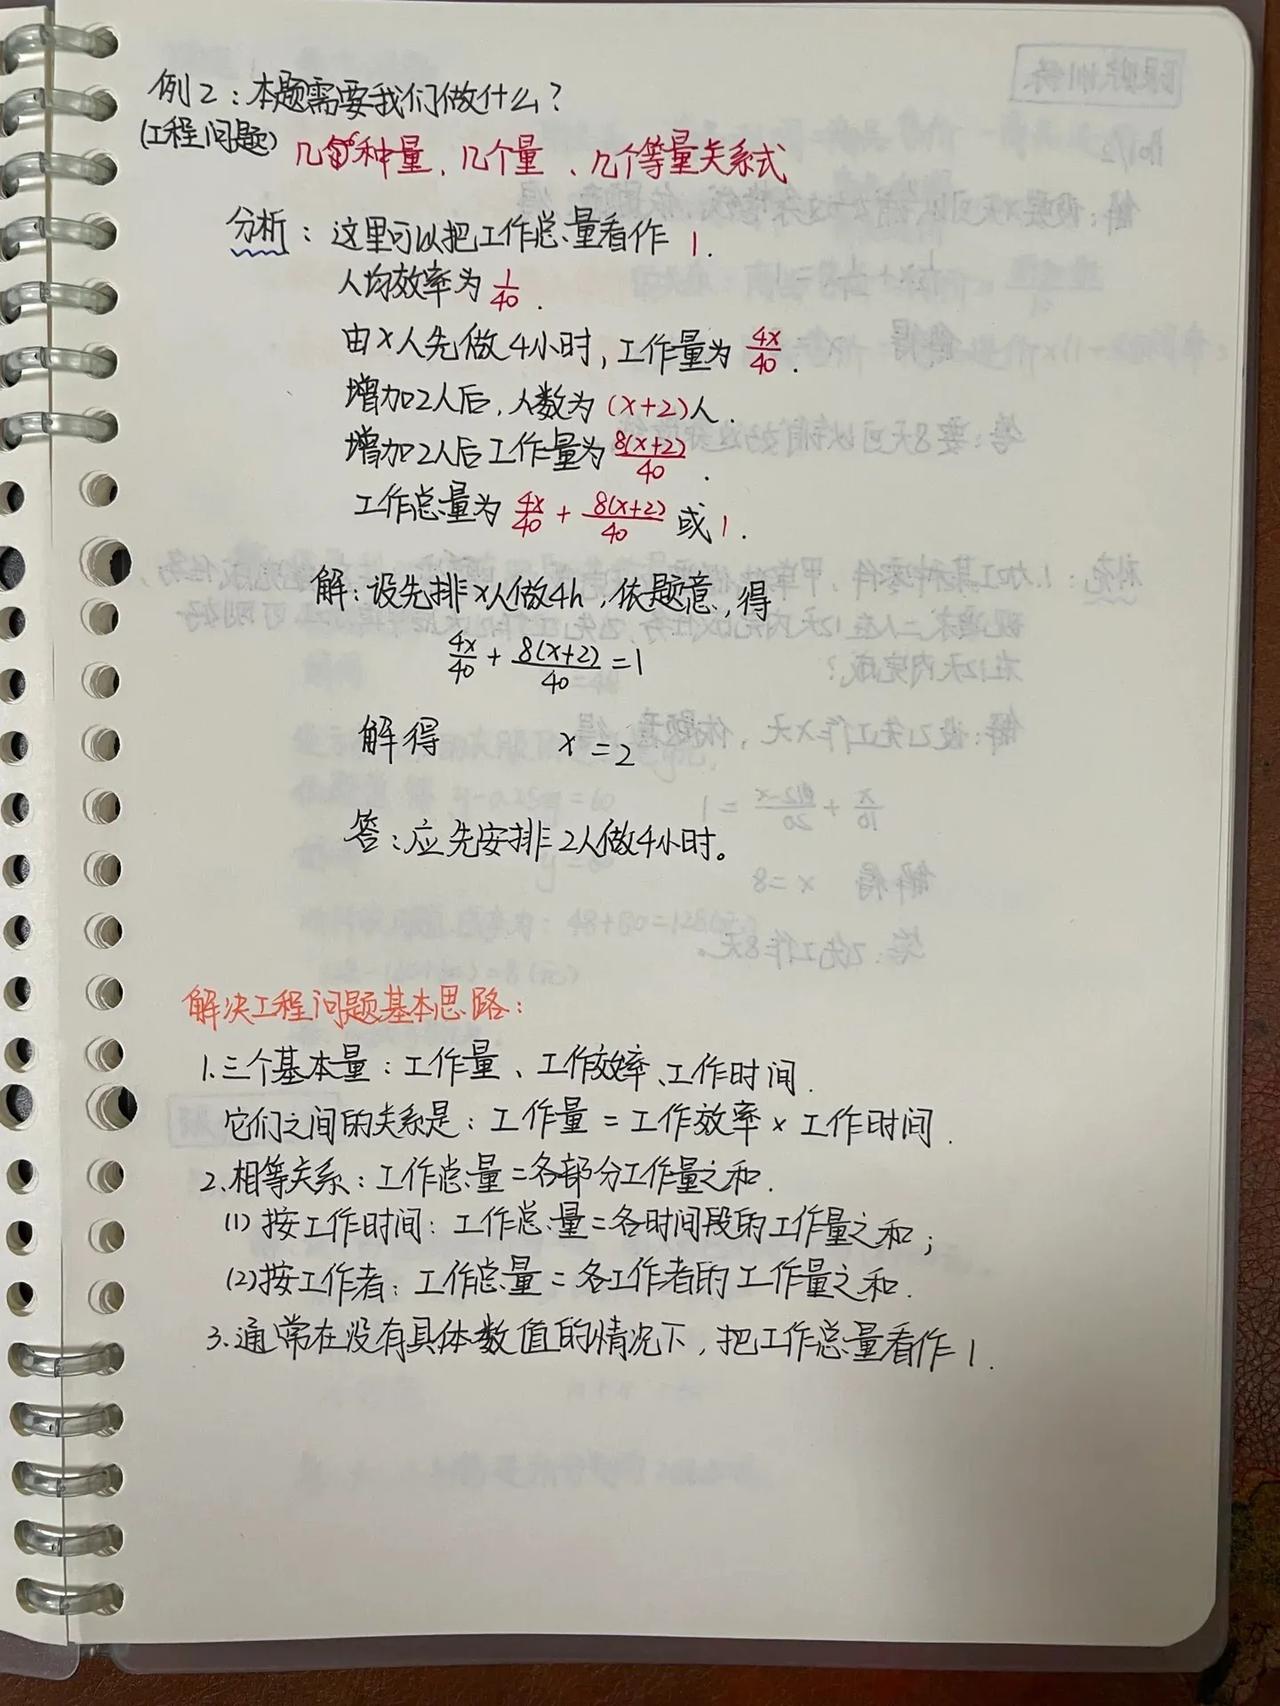 例2：本题需要我们做什么？
(工程问题) 几种量、几个量、几个等量关系式
分析：这里可以把工作总量看作 1.
人均效率为 1/40.
由x人先做4小时,工作量为 4x/40.
增加2人后,人数为(x+2)人.
增加2人后工作量为 8(x+2)/40.
工作总量为 4x/40 + 8(x+2)/40 或1.
解：设先排x人做4h,依题意,得
4x/40 + 8(x+2)/40 = 1
解得 x=2
答：应先安排2人做4小时。
解决工程问题基本思路：
1.三个基本量：工作量、工作效率、工作时间.
它们之间的关系是：工作量=工作效率×工作时间.
2.相等关系：工作总量=各部分工作量之和.
(1)按工作时间：工作总量=各时间段的工作量之和;
(2)按工作者：工作总量=各工作者的工作量之和.
3.通常在没有具体数值的情况下,把工作总量看作1.